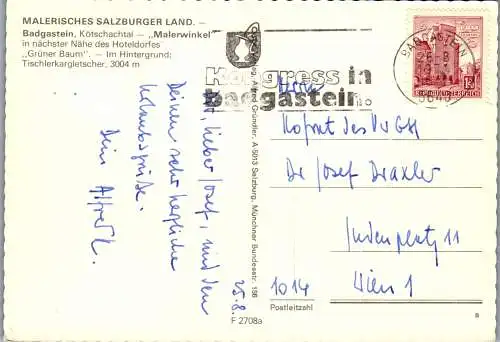 MALERISCHES SALZBURGER LAND. —
Badgastein, Kötschachtal — „Malerwinkel"
in nächster Nähe des Hoteldorfes
„Grüner Baum". — Im Hintergrund:
Tischlerkargletscher, 3004 m
lieber Josef, sind den
Deinen sehr herzliche
Urlaubsgrüße.
Dein Alfred
25.8.
F 2708a
Alfred Gründler, A-5013 Salzburg, Münchner Bundesstr. 156
Kongress in
badgastein.
BADGASTEIN
5640
REPUBLIK ÖSTERREICH
Herrn
Hofrat des VwGH
Dr Josef Draxler
Judenplatz 11
1014 Wien 1
Postleitzahl